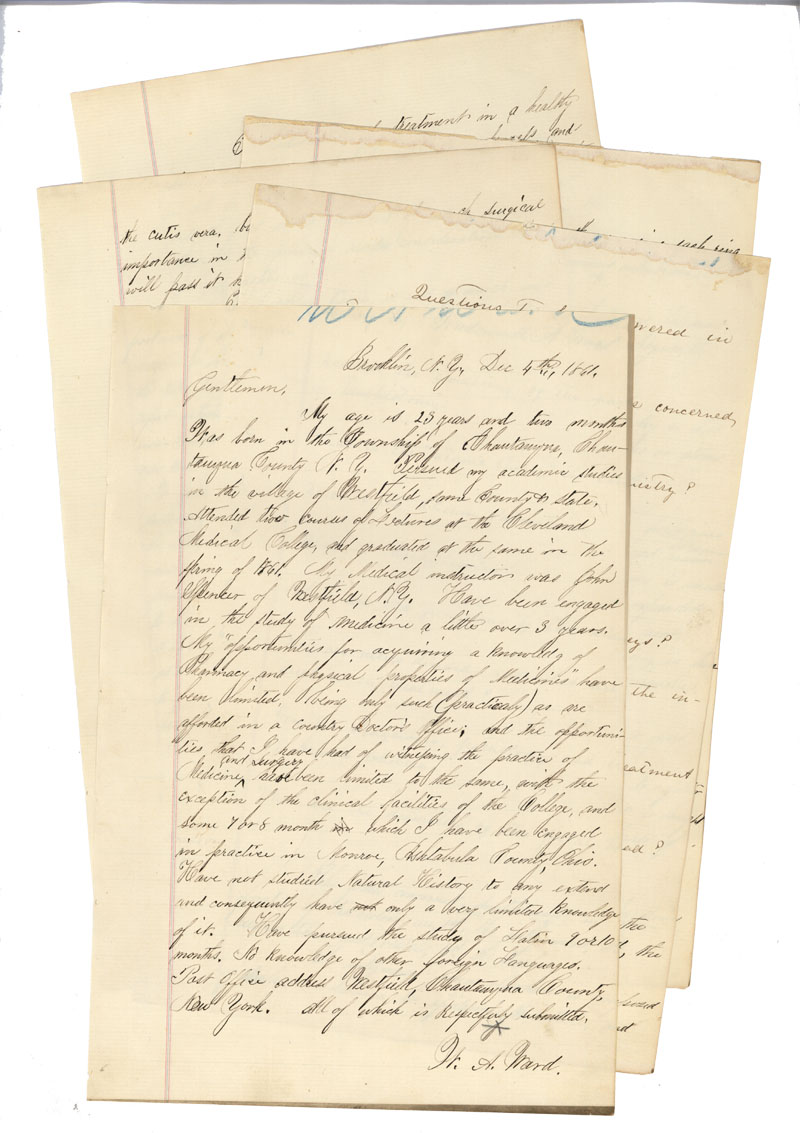 treatment in a healthy
and
surgical
the cutis vera.
sack ring
importance in
will pass it
Questions
wered in
concerned,
istry?
ys?
the in-
eatment
ed?
the
the
Brooklin, N.Y. Dec 4th, 1861.
Gentlemen,
My age is 23 years and two months
Was born in the Township of Chautauqua, Chau-
tauqua County N.Y. Persued my academic studies
in the village of Westfield, same County & State.
Attended two courses of Lectures at the Cleveland
Medical College, and graduated at the same in the
spring of 1861. My Medical instructor was John
Spencer of Westfield, N.Y. Have been engaged
in the study of medicine a little over 3 years.
My "opportunities for acquiring a knowledg of
Pharmacy and physical properties of Medicines" have
been limited, being only such (practicaly) as are
afforded in a country Doctor's Office; and the opportuni-
ties that I have had of witnessing the practice of
Medicine and Surgery have been limited to the same, with the
exception of the clinical facilities of the College, and
some 7 or 8 month in which I have been engaged
in practice in Monroe, Ashtabula County, Ohio.
Have not studied Natural History to any extend
and consequently have not only a very limited knowledge
of it. Have pursued the study of Latin 9 or 10
months. No knowledge of other foreign Languages.
Post Office address Westfield, Chautauqua County,
New York. All of which is respectfuly submitted.
W. A. Ward.